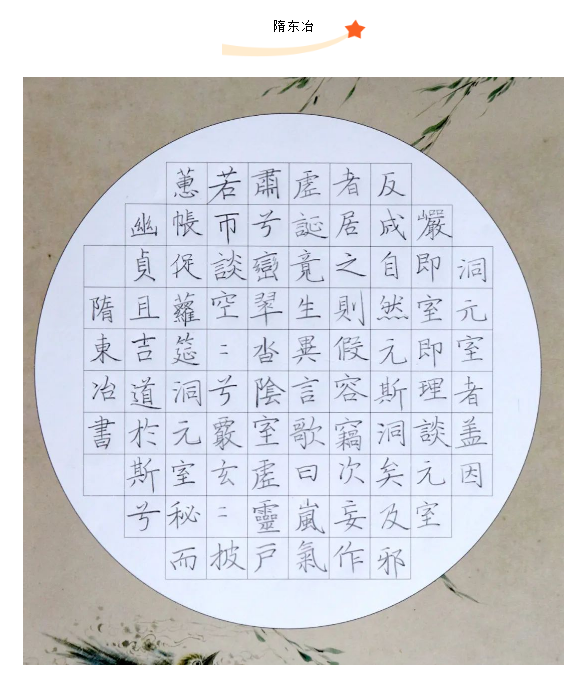 隋东冶
洞元室者盖因
巖即室即理談元室
反成自然元斯洞矣及邪
者居之則假容竊次妄作
虛誕竟生異言歌曰嵐氣
肅兮巒翠沓陰室虛靈戶
若帀談空〻兮覈玄〻披
蕙帳促蘿筵洞元室秘而
幽貞且吉道於斯兮
隋東冶書